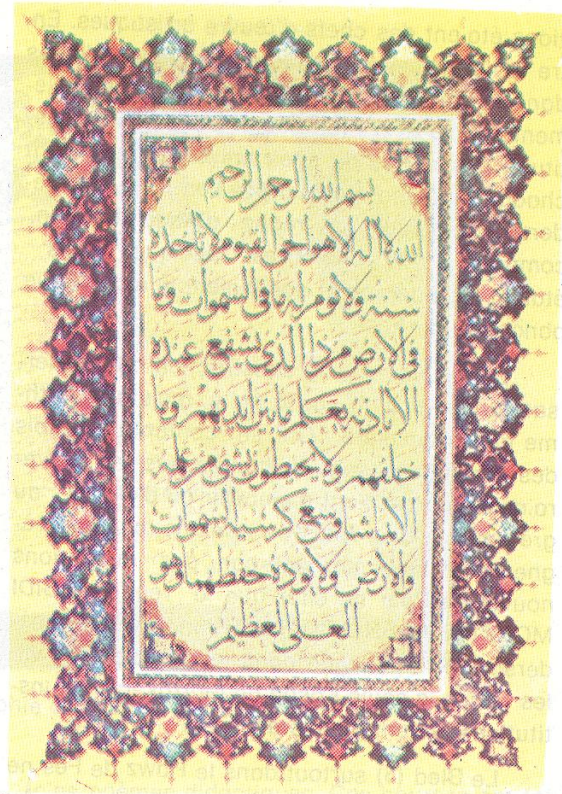 بسم الله الرحمن الرحيم
الله لا اله الا هو الحى القيوم لا تاخذه
سنة ولا نوم له ما فى السموات وما
فى الارض من ذا الذى يشفع عنده
الا باذنه يعلم ما بين ايديهم وما
خلفهم ولا يحيطون بشئ من علمه
الا بما شاء وسع كرسيه السموات
والارض ولا يوده حفظهما وهو
العلى العظيم